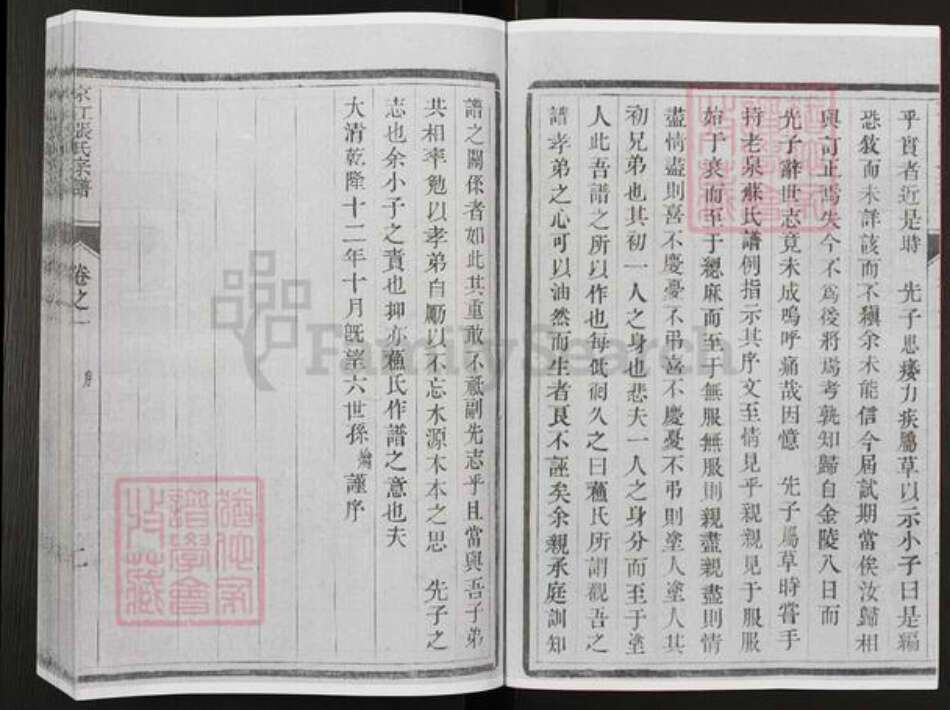 乎實者近是時 先子患痿力疾屬草以示小子曰是編
恐敘而未詳該而不穎余未能信今屆試期當俟汝歸相
與訂正焉失今不爲後將焉考孰知歸自金陵八日而
先子辭世志竟未成嗚呼痛哉因憶 先子屬草時嘗手
持老泉蘇氏譜例指示其序文至情見乎親親見于服服
始于衰而至于緦麻而至于無服無服則親盡親盡則情
盡情盡則喜不慶憂不弔喜不慶憂不弔則塗人塗人其
初兄弟也其初一人之身也悲夫一人之身分而至于塗
人此吾譜之所以作也每低徊久之曰蘓氏所謂觀吾之
譜孝弟之心可以油然而生者良不誣矣余親承庭訓知
譜之關係者如此其重敢不蕆副先志乎且當與吾子弟
共相率勉以孝弟自勵以不忘水源木本之思 先子之
志也余小子之責也抑亦蘓氏作譜之意也夫
大清乾隆十二年十月旣望六世孫 謹序
京江張氏宗譜
卷之一
序
二
FamilySearch